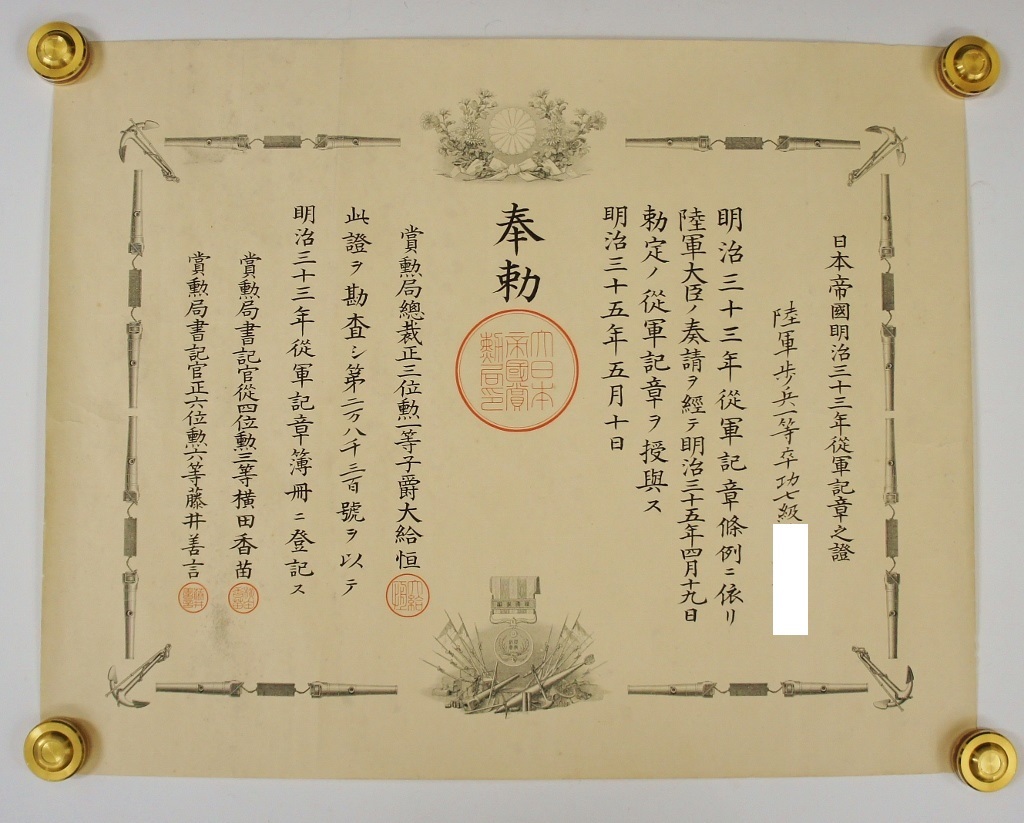 日本帝國明治三十三年從軍記章之證
陸軍歩兵一等卒功七級
明治三十三年從軍記章條例ニ依リ
陸軍大臣ノ奏請ヲ經テ明治三十五年四月十九日
勅定ノ從軍記章ヲ授與ス
明治三十五年五月十日
奉勅
大日本
帝國賞
勲局印
賞勲局總裁正三位勲一等子爵大給恒
此證ヲ勘査シ第二万八千三百號ヲ以テ
明治三十三年從軍記章簿冊ニ登記ス
賞勲局書記官從四位勲三等横田香苗
賞勲局書記官正六位勲六等藤井善言